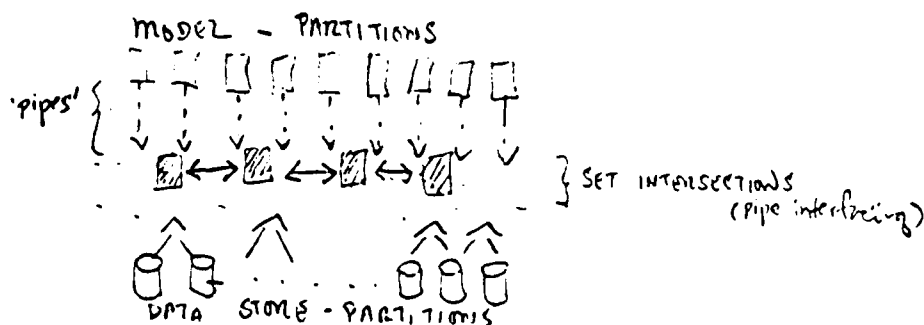 MODEL - PARTITIONS
'pipes'
SET INTERSECTIONS
(pipe interfacing)
DATA STORE - PARTITIONS